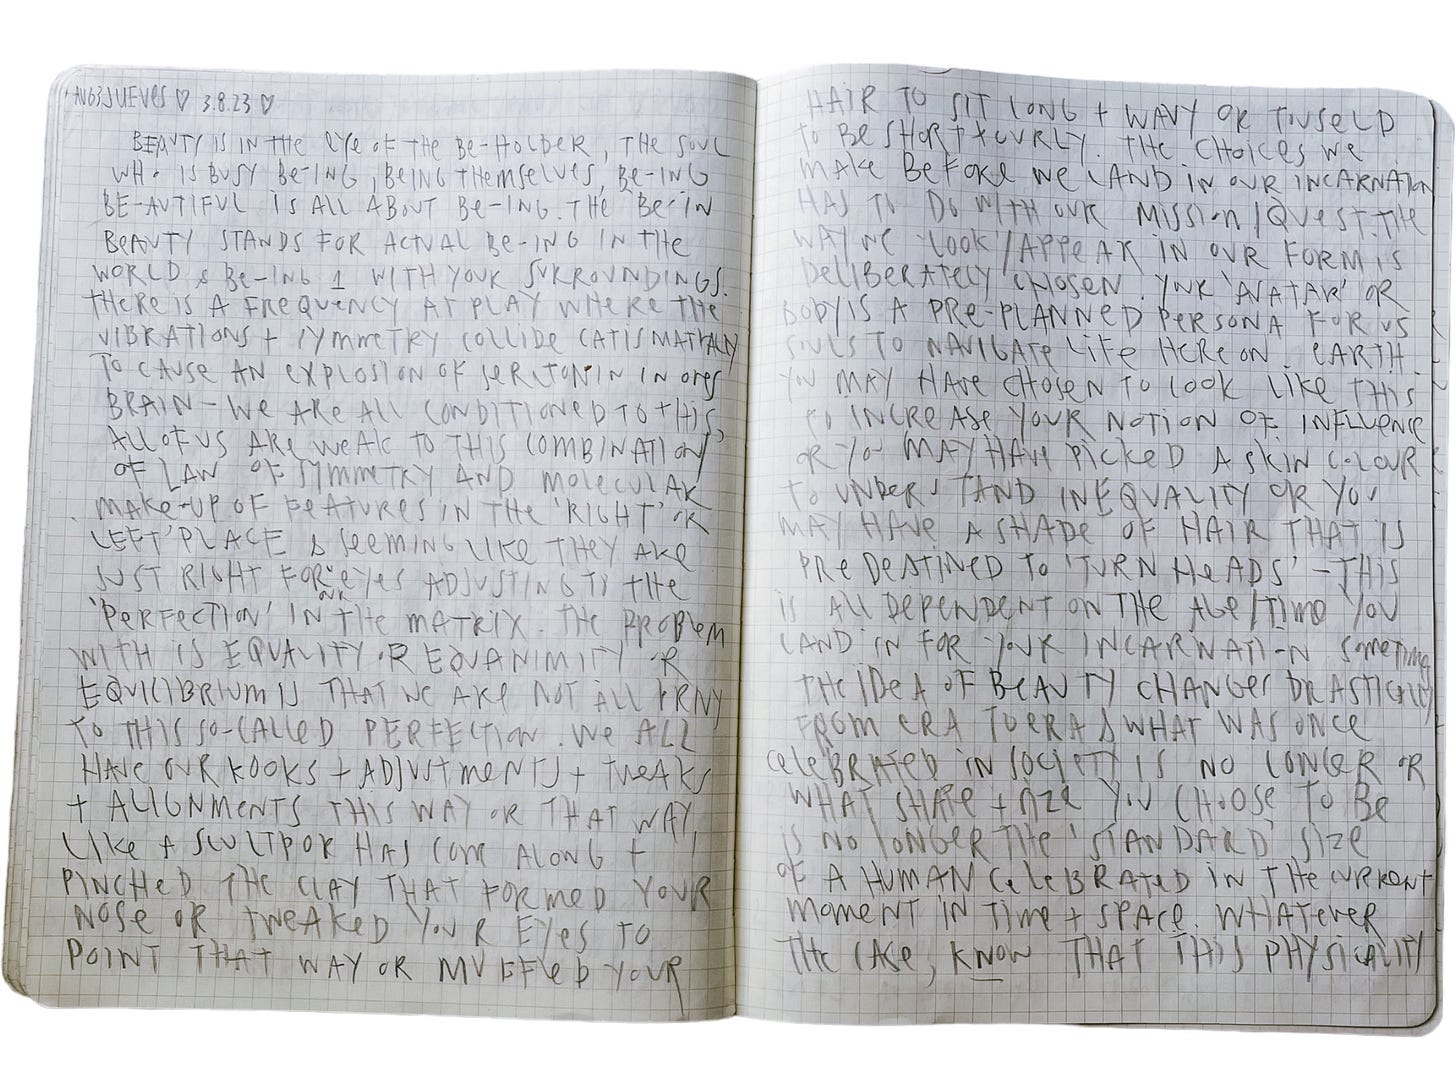 AUG3 JUEVES ♡ 3.8.23 ♡
BEAUTY IS IN THE EYE OF THE BE-HOLDER, THE SOUL
WHO IS BUSY BE-ING, BEING THEMSELVES, BE-ING
BE-AUTIFUL IS ALL ABOUT BE-ING. THE 'BE' IN
BEAUTY STANDS FOR ACTUAL BE-ING IN THE
WORLD & BE-ING 1 WITH YOUR SURROUNDINGS.
THERE IS A FREQUENCY AT PLAY WHERE THE
VIBRATIONS + SYMMETRY COLLIDE CATISMATICALLY
TO CAUSE AN EXPLOSION OF SERITONIN IN ONES
BRAIN - WE ARE ALL CONDITIONED TO THIS,
ALL OF US ARE WEAK TO THIS COMBINATION
OF LAW OF SYMMETRY AND MOLECULAR
MAKE-UP OF FEATURES IN THE 'RIGHT' OR
LEFT' PLACE & SEEMING LIKE THEY ARE
JUST RIGHT FOR OUR EYES ADJUSTING TO THE
'PERFECTION' IN THE MATRIX. THE PROBLEM
WITH IS EQUALITY OR EQUANIMITY OR
EQUILIBRIUM IS THAT WE ARE NOT ALL
TO THIS SO-CALLED PERFECTION. WE ALL
HAVE OUR KOOKS + ADJUSTMENTS + TWEAKS
+ ALIGNMENTS THIS WAY OR THAT WAY,
LIKE A SCULTPOR HAS COME ALONG +
PINCHED THE CLAY THAT FORMED YOUR
NOSE OR TWEAKED YOUR EYES TO
POINT THAT WAY OR MUFFLED YOUR
HAIR TO SIT LONG + WAVY OR
TO BE SHORT + CURLY. THE CHOICES WE
MAKE BEFORE WE LAND IN OUR INCARNATION
HAS TO DO WITH OUR MISSION/QUEST. THE
WAY WE 'LOOK'/APPEAR IN OUR FORM IS
DELIBERATELY CHOSEN. YOUR 'AVATAR' OR
BODY IS A PRE-PLANNED PERSONA FOR US
SOULS TO NAVIGATE LIFE HERE ON EARTH.
YOU MAY HAVE CHOSEN TO LOOK LIKE THIS
TO INCREASE YOUR NOTION OF INFLUENCE
OR YOU MAY HAVE PICKED A SKIN COLOUR
TO UNDERSTAND INEQUALITY OR YOU
MAY HAVE A SHADE OF HAIR THAT IS
PREDESTINED TO 'TURN HEADS' - THIS
IS ALL DEPENDENT ON THE AGE/TIME YOU
LAND IN FOR YOUR INCARNATION SOMETIMES
THE IDEA OF BEAUTY CHANGES DRASTICALLY
FROM ERA TO ERA & WHAT WAS ONCE
CELEBRATED IN SOCIETY IS NO LONGER OR
WHAT SHAPE + SIZE YOU CHOOSE TO BE
IS NO LONGER THE 'STANDARD' SIZE
OF A HUMAN CELEBRATED IN THE CURRENT
MOMENT IN TIME + SPACE. WHATEVER
THE CASE, KNOW THAT THIS PHYSICALITY